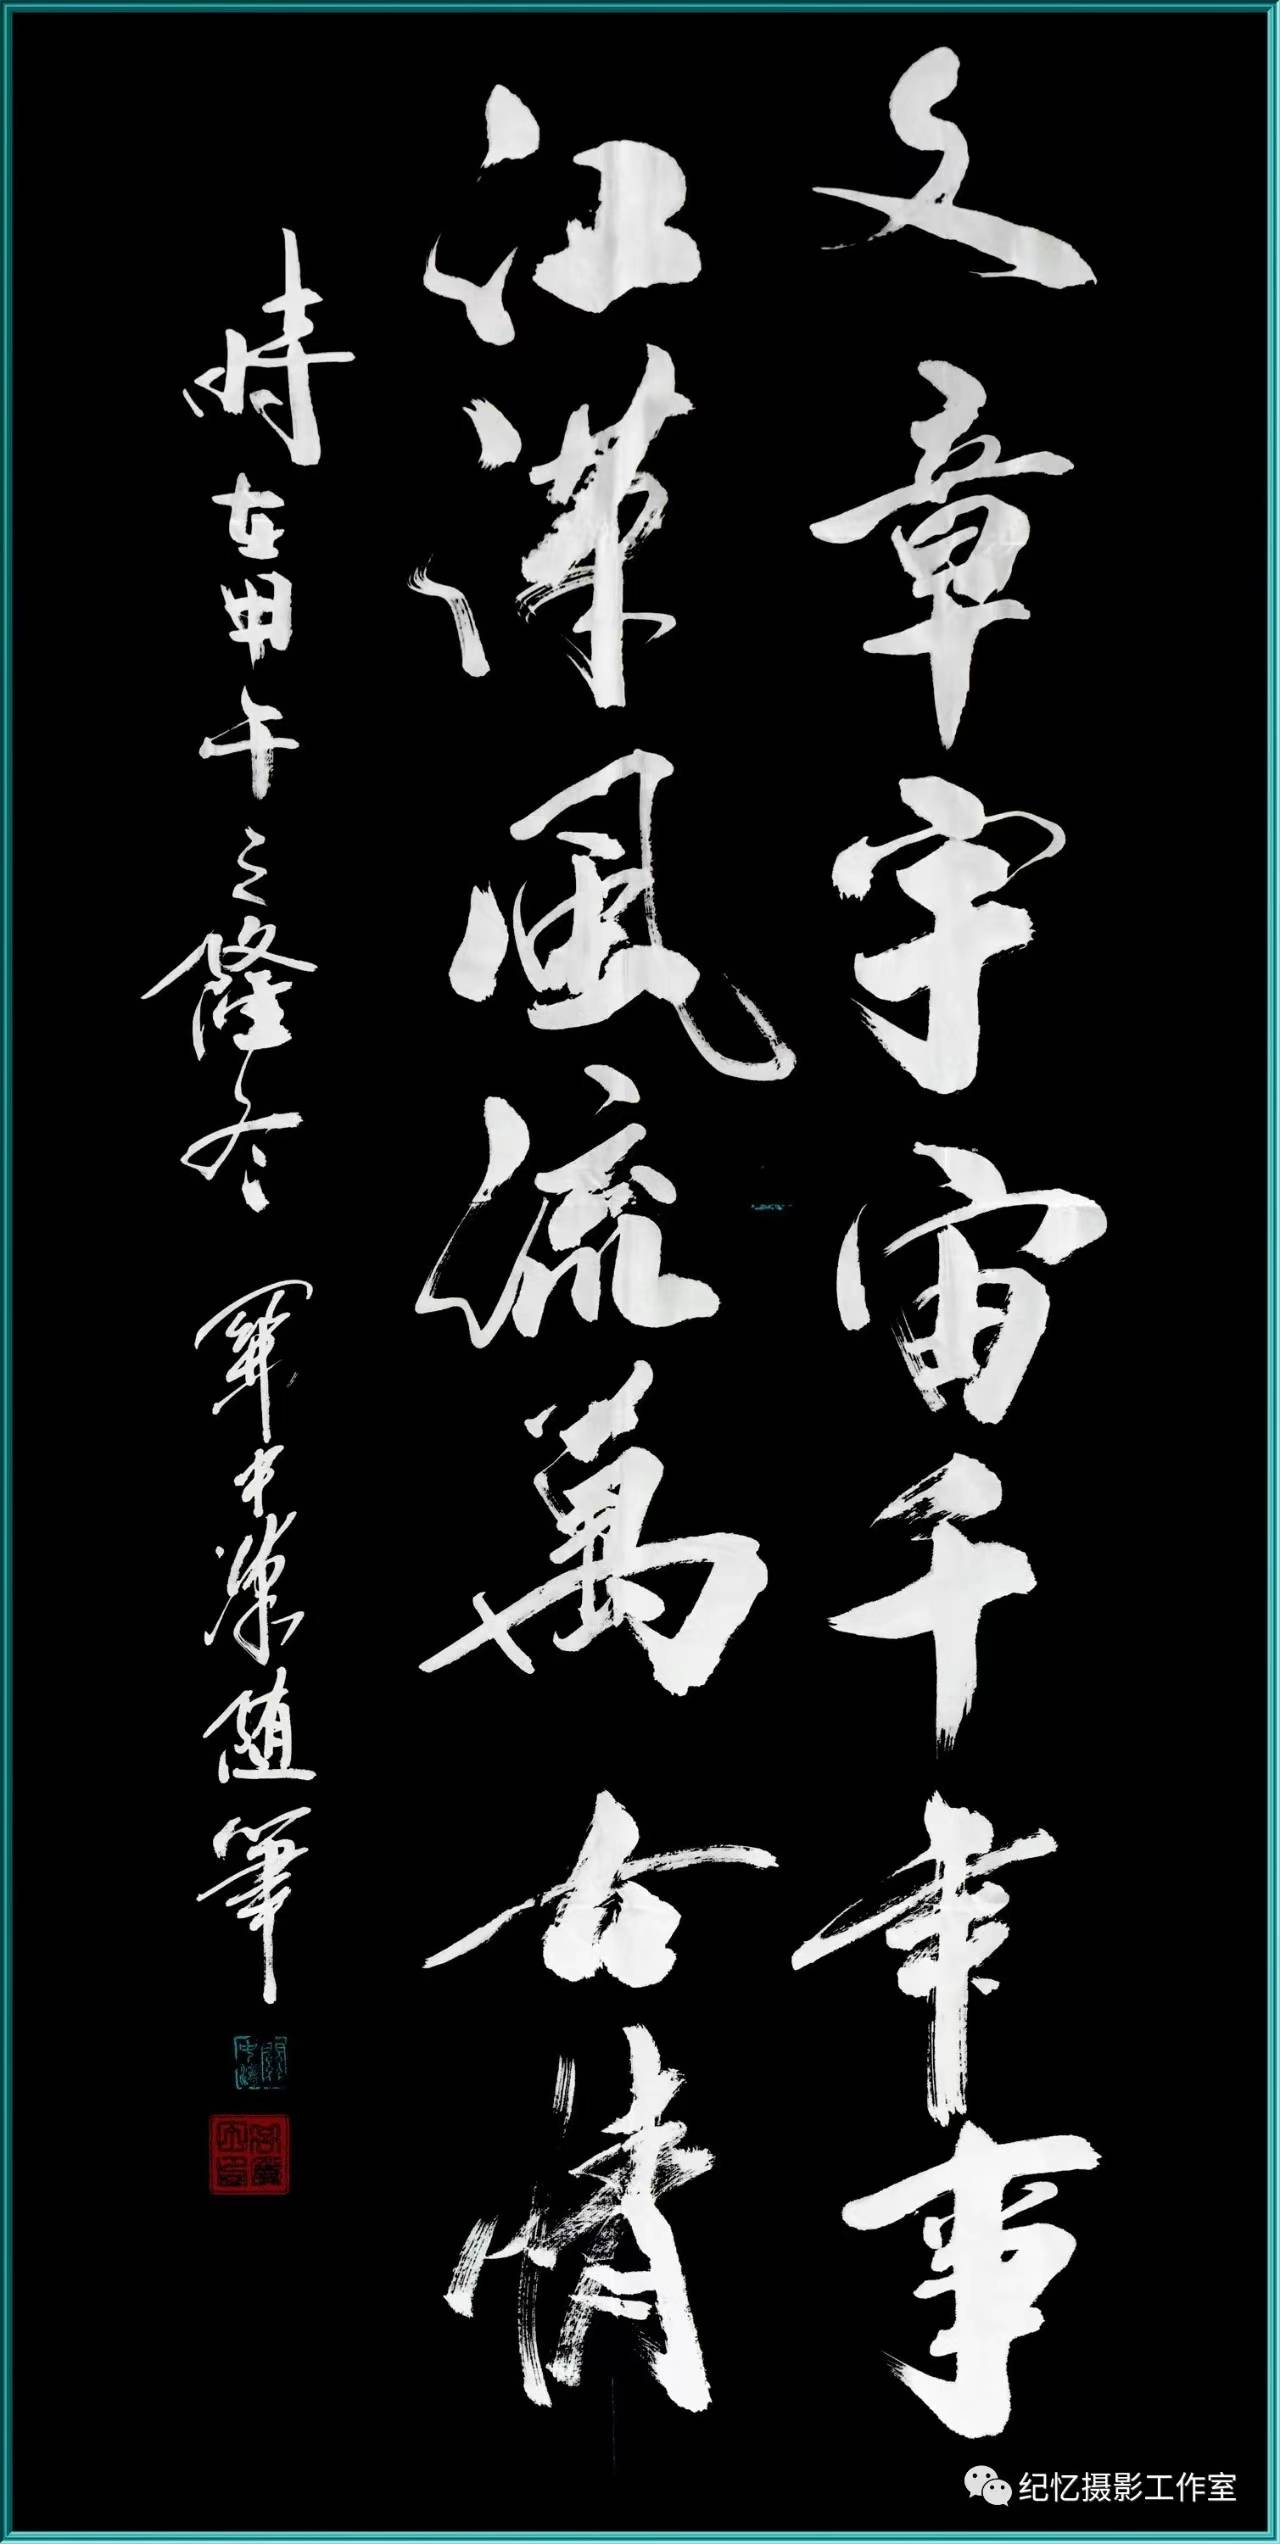 文章宇宙千年事
江漢風流萬古情
时在甲午之隆冬 中随筆
纪忆摄影工作室